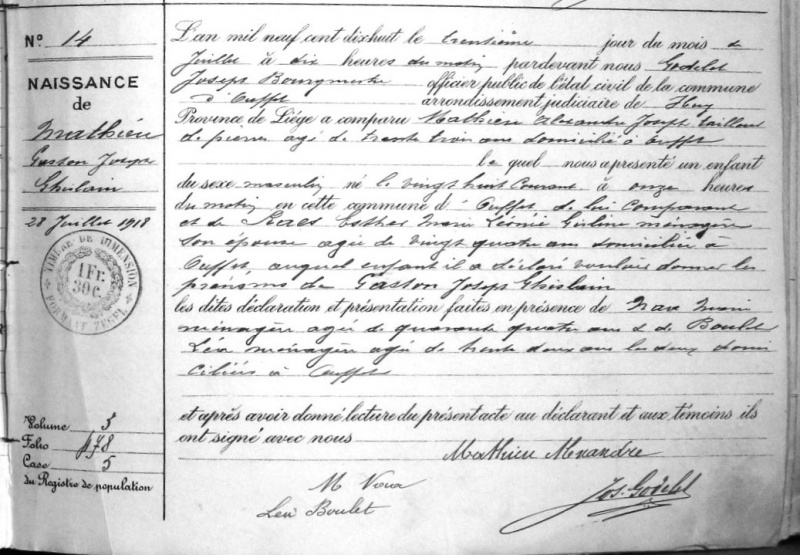 N° 14
NAISSANCE
de
Mathieu
Gaston Joseph
Ghislain
28 Juillet 1918
TIMBRE DE DIMENSION
1 Fr.
30 C.
FORMAAT ZEGEL
Volume 5
Folio 178
Case 5
du Registre de population
L'an mil neuf cent dixhuit le trentième jour du mois de
Juillet à dix heures du matin pardevant nous Godelet
Joseph Bourgmestre officier public de l'état civil de la commune
d'Ouffet arrondissement judiciaire de Huy
Province de Liége a comparu Mathieu Alexandre Joseph tailleur
de pierres agé de trente trois ans domicilié à Ouffet
le quel nous a présenté un enfant
du sexe masculin né le vingt huit courant à onze heures
du matin en cette commune d'Ouffet de lui comparant
et de Raes Esther Marie Léonie Gisline ménagère
son épouse agée de vingt quatre ans domiciliée à
Ouffet, auquel enfant il a déclaré vouloir donner les
prénoms de Gaston Joseph Ghislain
les dites déclaration et présentation faites en présence de Marie
ménagère agée de quarante quatre ans & de Boulet
Léa ménagère agée de trente deux ans les deux domi
ciliées à Ouffet
et après avoir donné lecture du présent acte au déclarant et aux témoins ils
ont signé avec nous
Mathieu Alexandre
M
Léa Boulet
Jos. Godelet